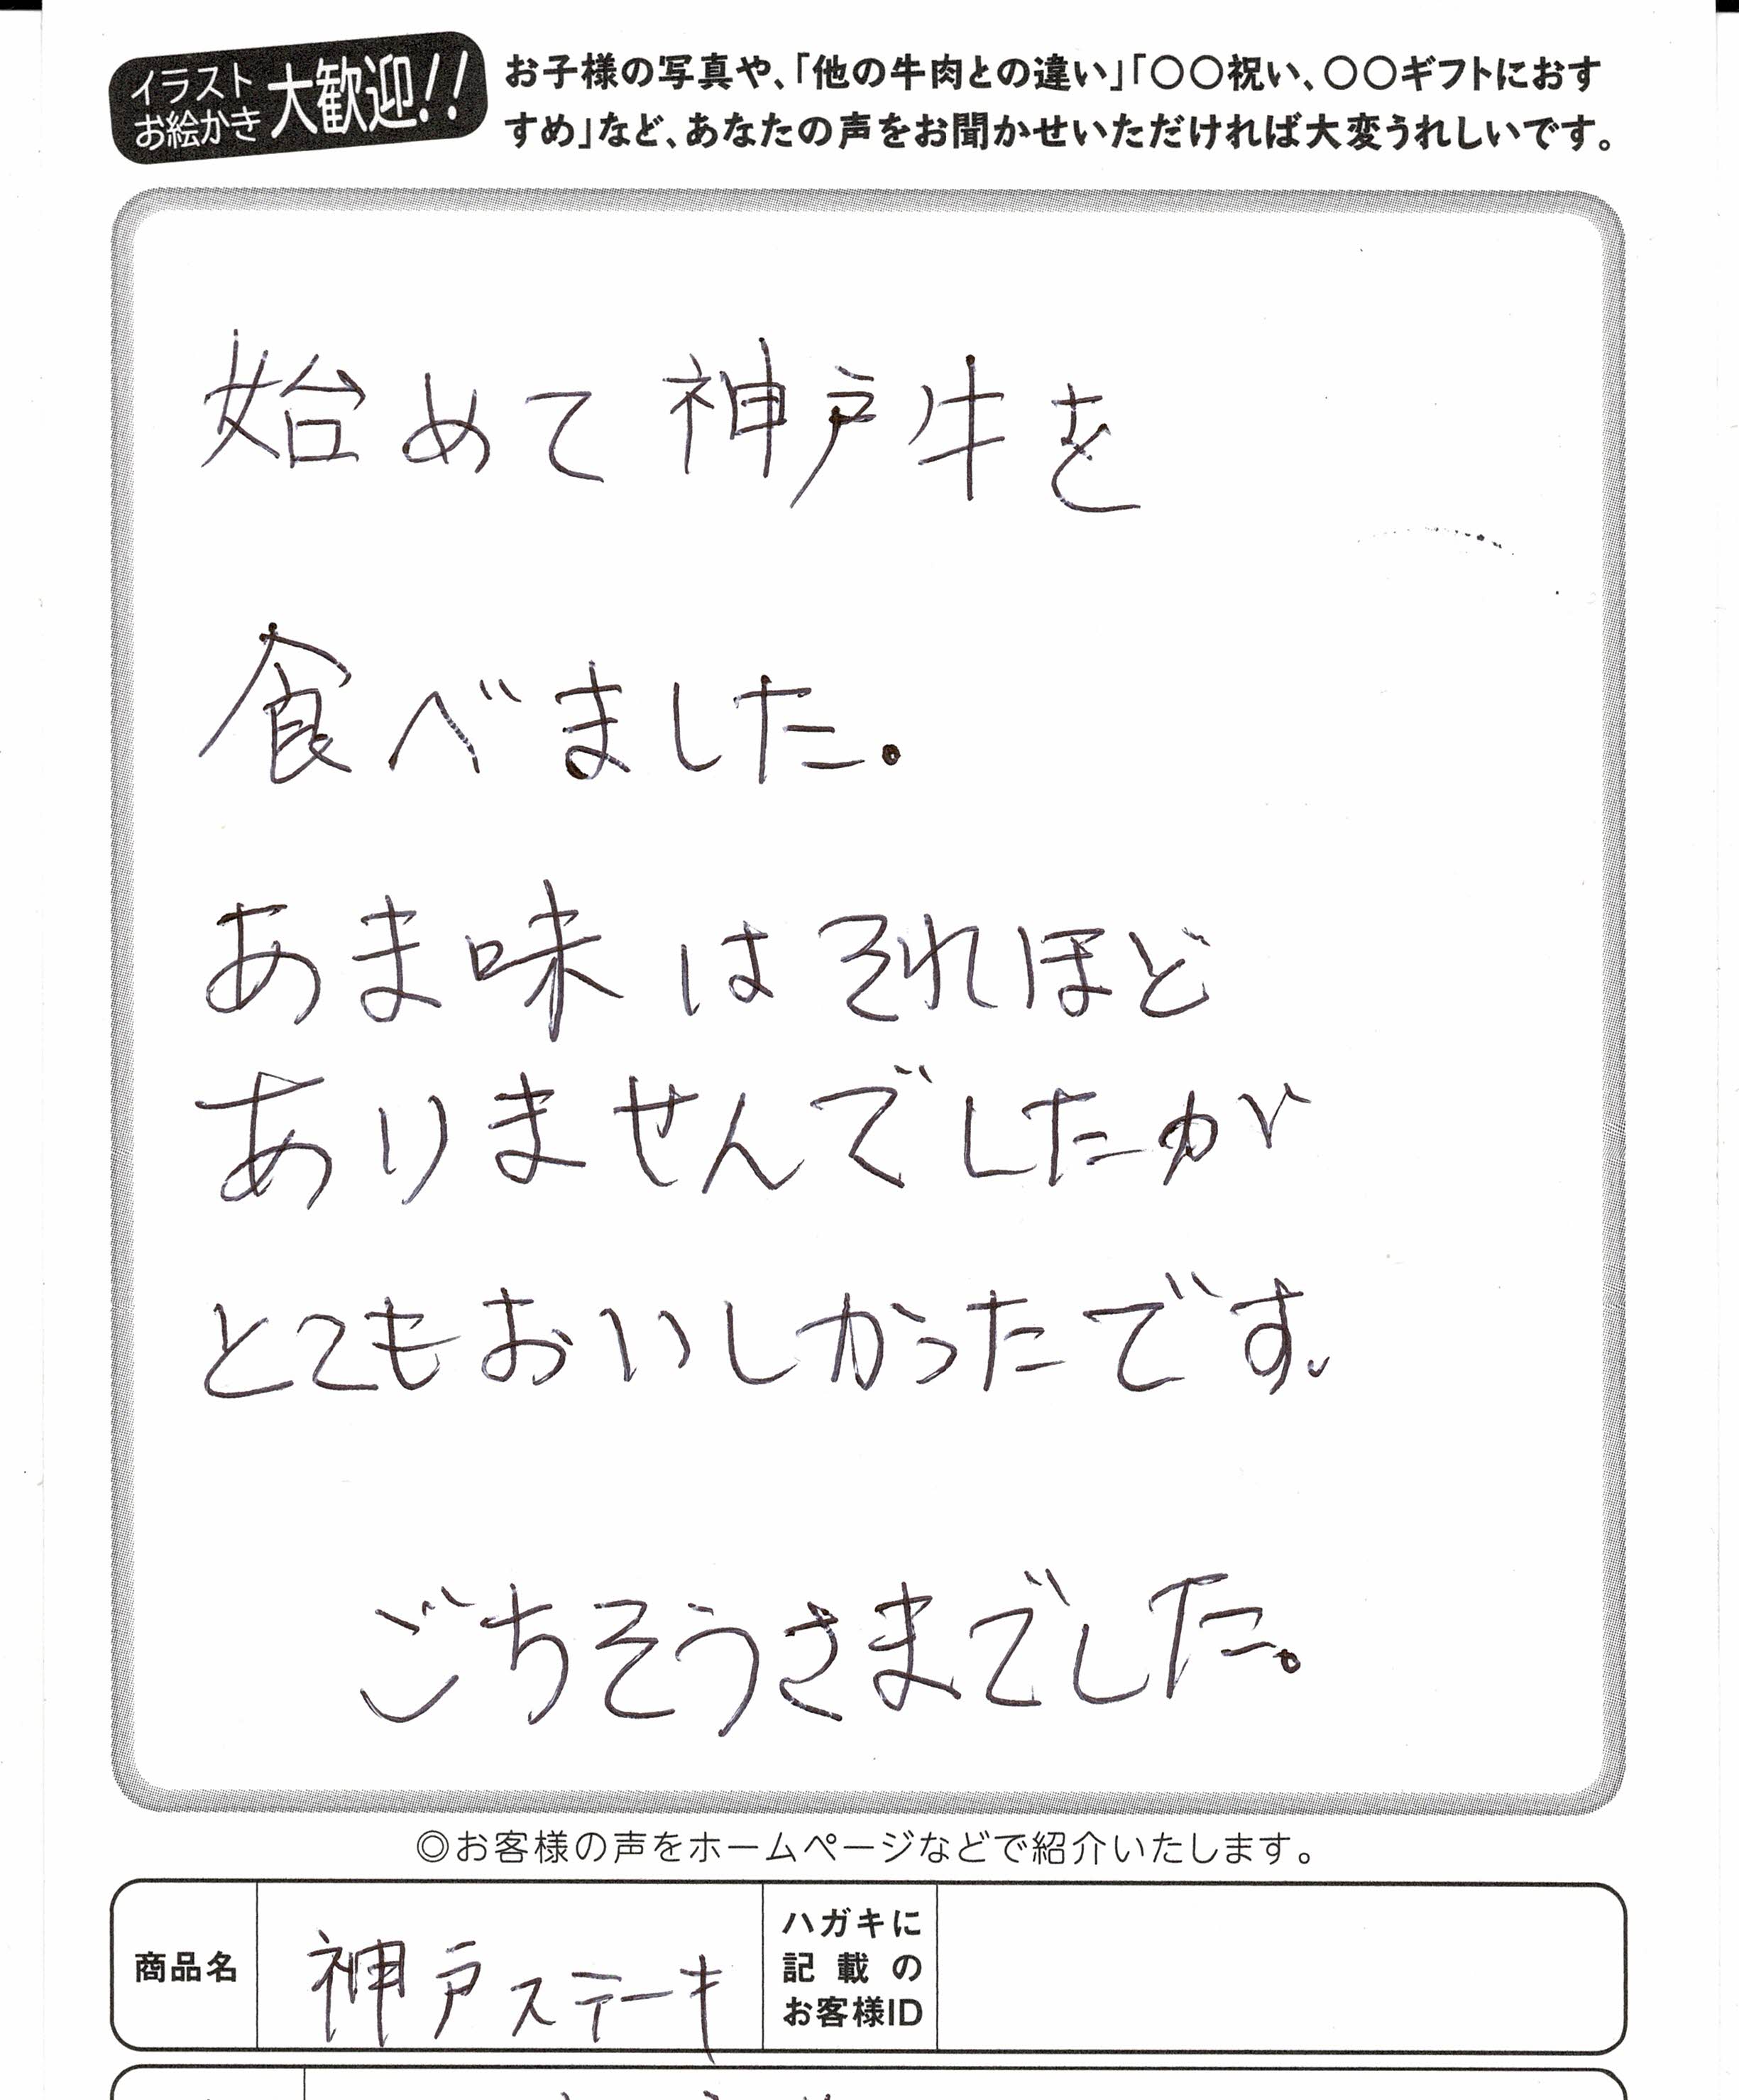 イラスト
お絵かき
大歓迎!!
お子様の写真や、「他の牛肉との違い」「〇〇祝い、〇〇ギフトにおす
すめ」など、あなたの声をお聞かせいただければ大変うれしいです。
始めて神戸牛を
食べました。
あま味はそれほど
ありませんでしたが
とてもおいしかったです。
ごちそうさまでした。
◎お客様の声をホームページなどで紹介いたします。
商品名
神戸ステーキ
ハガキに
記載の
お客様ID